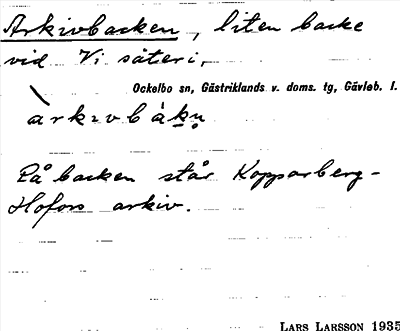 Arkivbacken, liten backe
vid Vi säteri,
Ockelbo sn, Gästriklands v. doms. tg, Gävleb. l.
àrkivbàkn̥
På backen står Kopparberg-
Hofors arkiv.
LARS LARSSON 1935